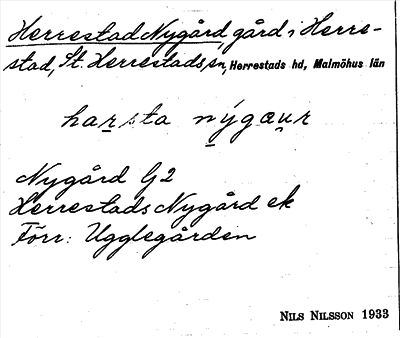 Herrestad Nygård, gård i Herre-
stad, St. Herrestads sn, Herrestads hd, Malmöhus län
harsta nýgæu̯r
Nygård G2
Herrestads Nygård ek
Förr: Ugglegården
NILS NILSSON 1933